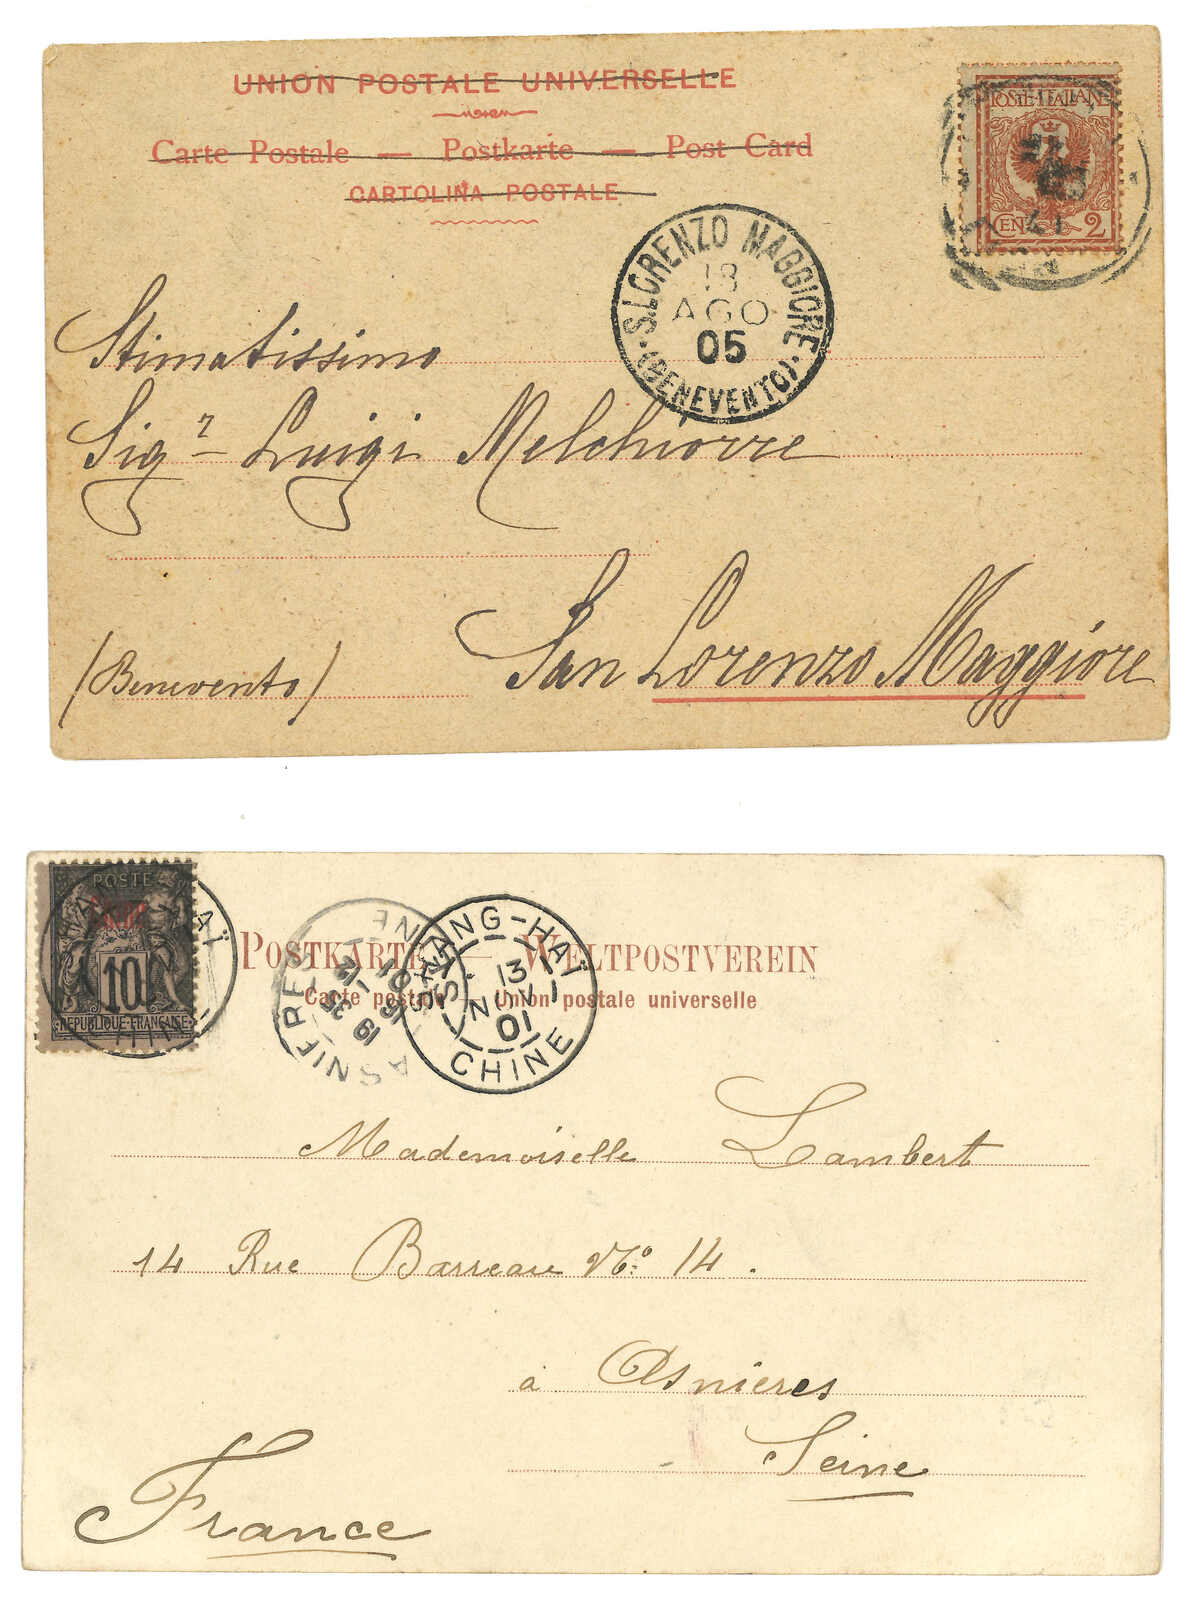 UNION POSTALE UNIVERSELLE
Carte Postale — Postkarte — Post Card
CARTOLINA POSTALE
POSTE ITALIANE
CEN 2
S. LORENZO MAGGIORE
18
AGO
05
(BENEVENTO)
Stimatissimo
Sigr Luigi Melchiorre
San Lorenzo Maggiore
(Benevento)
POSTE
Chine
10
REPUBLIQUE FRANÇAISE
POSTKARTE — WELTPOSTVEREIN
Carte postale — Union postale universelle
ASNIERES
SHANG-HAÏ
13
NOV
01
CHINE
Mademoiselle Lambert
14 Rue Barreau No: 14.
à Asnières
Seine
France